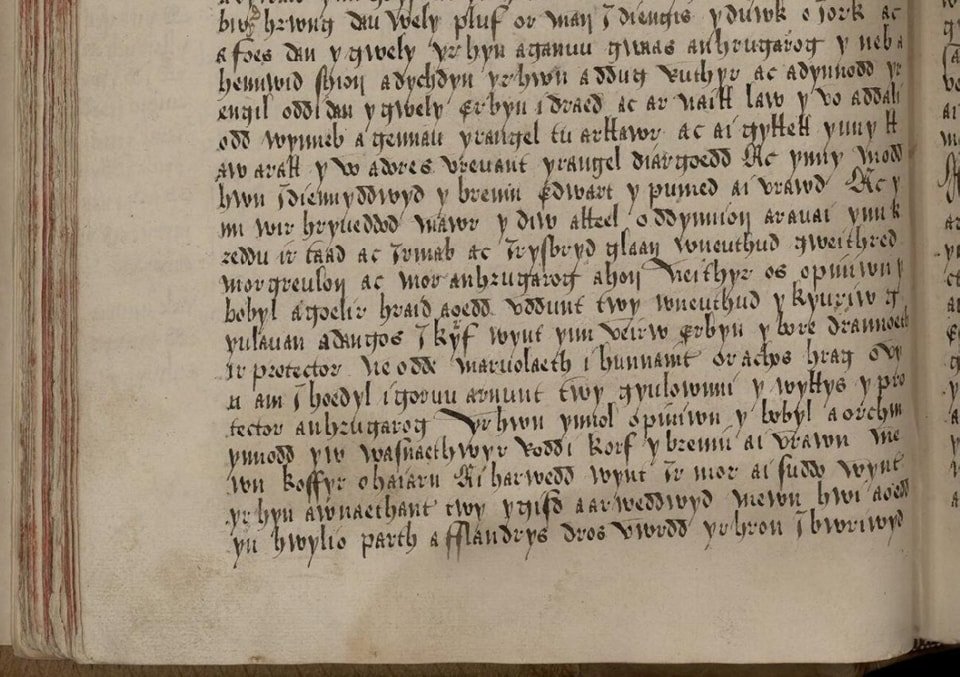 biv hrwng dau wely pluf or man J diengis y duwk o Jork ac
a foes dan y gwely yr hyn aganuu gwaas anhrugarog y neb a
henwid shion a dychdyn yr hwn a ddug ruthyr ac a dynnodd yr
engil oddi dan y gwely Erbyn i draed ac ar naill law y vo addali
odd wynneb a gennau yr angel tu ar llawr ac ai gyllell ynny ll
aw arall y vo a dores vreuant yr angel diargoedd Ac ynny modd
hwn J dienyddwyd y brenin Edwart y pumed ai vrawd Ac y
mi wir hryueddod mawr y diw alleel o ddynnion aravai ynn k
reddu ir taad ac Jr mab ac Jr ysbryd glaan wneuthud gweithred
mor greulon ac mor anhrugarog a hon Neithyr os opiniwn y
bobyl a goelir hraid aoedd vddunt twy wneuthud y kyuriw g
ynlauan a dangos J kyf wynt ynn veirw Erbyn y bore drannoeth
ir protector ne odde marvolaeth i hunnamt or achos hrag ovy
n am J hoedyl i goruu arnunt twy gyulowni y wyllys y pro
tector anhrugarog Yr hwn ynnol opiniwn y bobyl a orchm
ynnodd yw wasnaethwyr roddi korf y brenin ai vrawn me
wn koffyr o haiarn Ai harwedd wynt Jr mor ai suddo wynt
yr hyn awnaethant twy y gisd a arweddwyd mewn hwi aoedd
yn hwylio parth a fflandrys dros vwrdd yr hron J bwriwyd